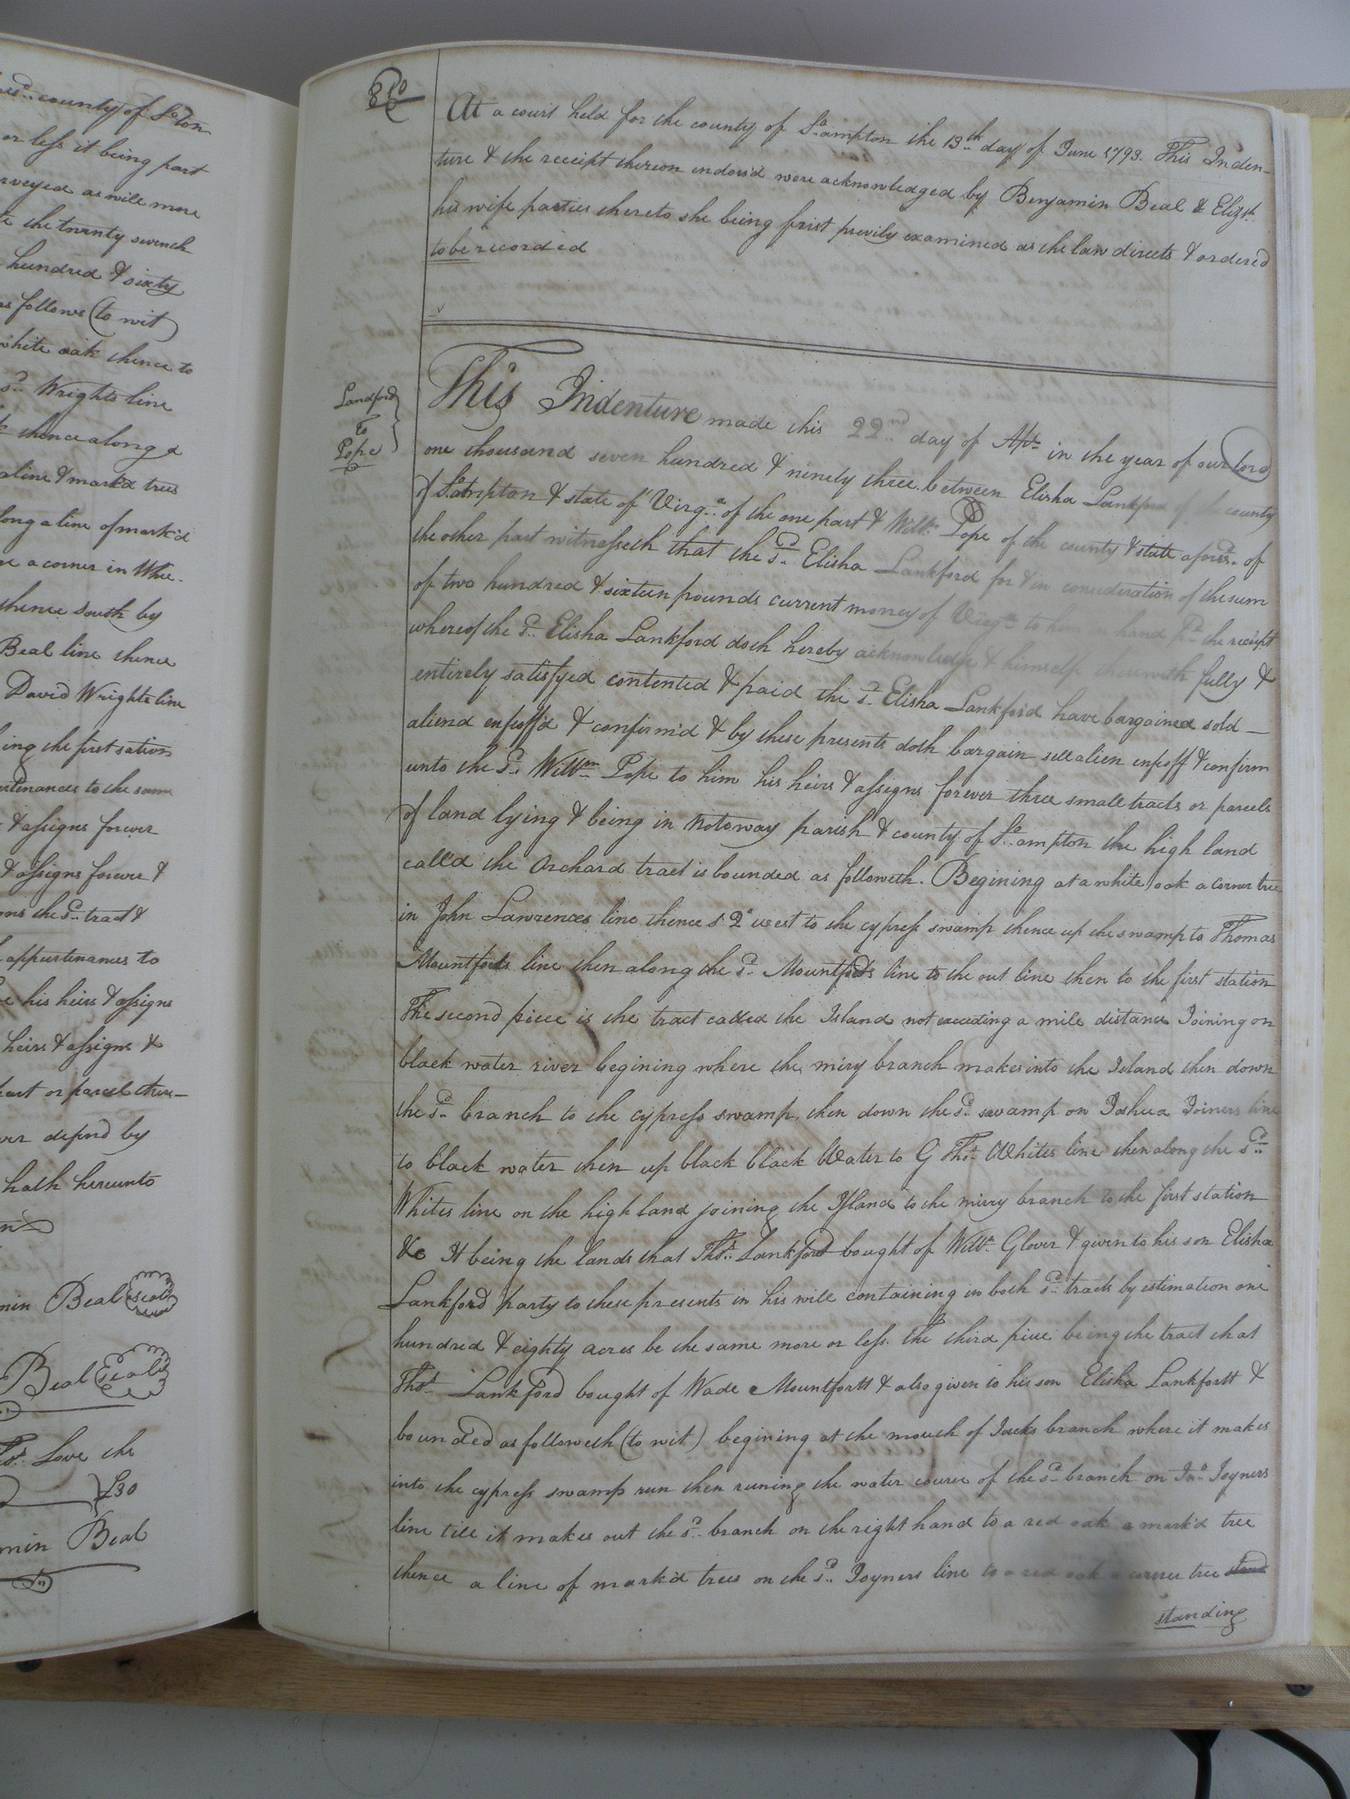 resd. county of So.ton
or less it being part
rveyed as will more
te the twenty seventh
hundred & sixty
as follows (to wit)
white oak thence to
sd. Wrights line
thence along a
a line & mark'd trees
long a line of mark'd
a corner in Whee-
thence South by
Beal line thence
David Wrights line
ing the first sation
urtenances to the same
& assigns forever
& assigns forever &
the sd. tract &
appurtenances to
his heirs & assigns
heirs & assigns &
part or parcel there-
ver defend by
hath hereunto
min Beal seal
Beal seal
Love the
£30
min Beal
At a court held for the county of So.ampton the 13th day of June 1793. This Inden-
ture & the receipt thereon endors'd were acknowledged by Benjamin Beal & Elizth.
his wife parties thereto she being frist previly examined as the law directs & ordered
to be recorded
Lankford
To
Pope
This Indenture made this 22nd. day of Apr. in the year of our Lord
one thousand seven hundred & ninety three between Elisha Lankford of the county
of So.ampton & state of Virga. of the one part & Willm. Pope of the county & state aforesd. of
the other part witnesseth that the sd. Elisha Lankford for & in consideration of the sum
of two hundred & sixteen pounds current money of Virga. to him in hand pd. the receipt
whereof the sd. Elisha Lankford doth hereby acknowledge & himself therewith fully &
entirely satisfyed contented & paid the sd. Elisha Lankford have bargained sold
aliend enfeoff'd & confirm'd & by these presents doth bargain sell alien enfeoff & confirm
unto the sd. Willm. Pope to him his heirs & assigns forever three small tracts or parcels
of land lying & being in Notoway parish & county of So.ampton the high land
call'd the Orchard tract is bounded as followeth. Begining at a white oak a corner tree
in John Lawrences line thence s 2° west to the cypress swamp thence up the swamp to Thomas
Mountfords line then along the sd. Mountfords line to the out line then to the first station
The second piece is the tract called the Island not exceeding a mile distance Joining on
black water river begining where the miry branch makes into the Island then down
the sd. branch to the cypress swamp, then down the sd. swamp on Joshua Joiners line
to black water then up black black Water to G Thos. Whites line then along the sd.
Whites line on the high land joining the Island to the mirry branch to the first station
&c It being the lands that Thos. Lankford bought of Willm. Glover & given to his son Elisha
Lankford party to these presents in his will containing in both sd. tracts by estimation one
hundred & eighty acres be the same more or less. The third piece being the tract that
Thos. Lankford bought of Wade Mountfortt & also given to his son Elisha Lankfortt &
bounded as followeth (to wit) begining at the mouth of Jacks branch where it makes
into the cypress swamp run then runing the water course of the sd. branch on Jno. Joyners
line till it makes out the sd. branch on the right hand to a red oak a mark'd tree
thence a line of mark'd trees on the sd. Joyners line to a red oak a corner tree stand
standing